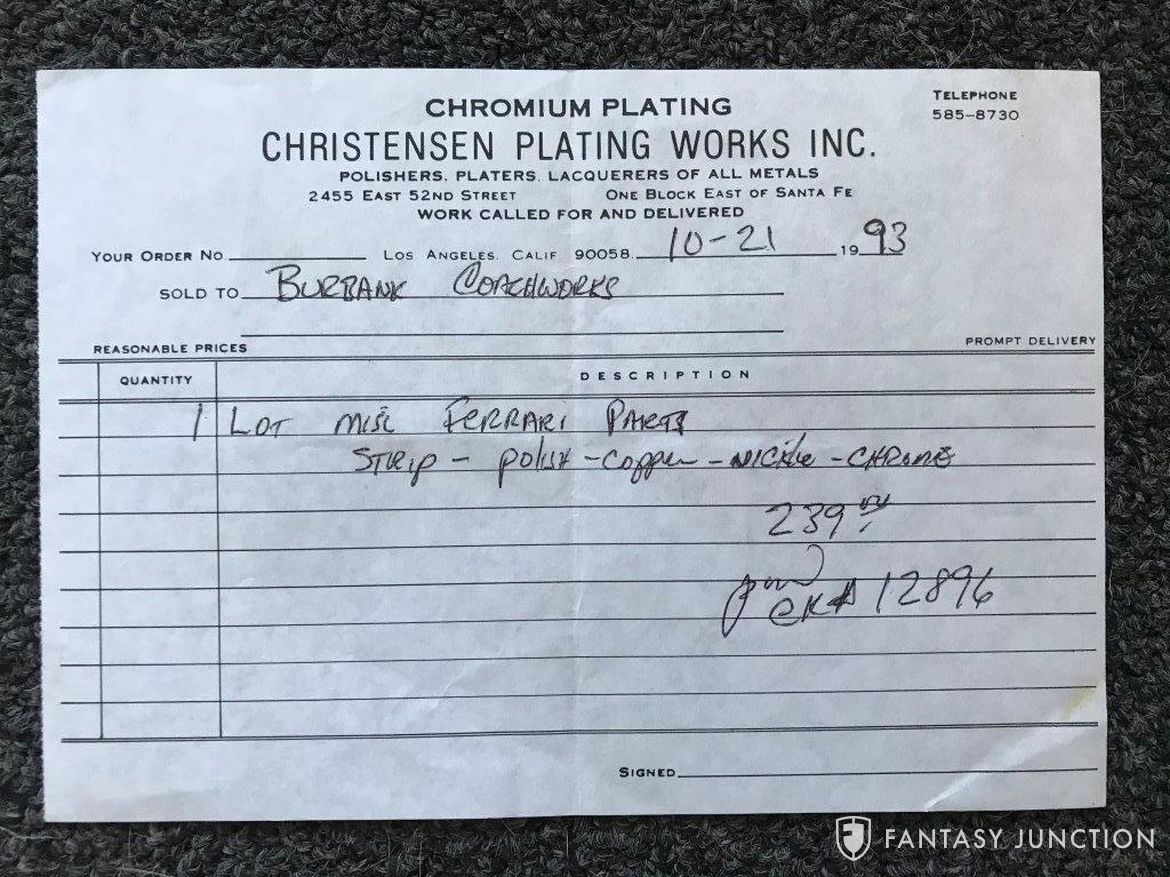 CHROMIUM PLATING
TELEPHONE
585-8730
CHRISTENSEN PLATING WORKS INC.
POLISHERS. PLATERS. LACQUERERS OF ALL METALS
2455 EAST 52ND STREET ONE BLOCK EAST OF SANTA FE
WORK CALLED FOR AND DELIVERED
YOUR ORDER NO. LOS ANGELES. CALIF 90058. 10-21 1993
SOLD TO BURBANK COACHWORKS
REASONABLE PRICES PROMPT DELIVERY
QUANTITY DESCRIPTION
1 LOT MISC FERRARI PARTS
STRIP - POLISH - COPPER - NICKLE - CHROME
239
CK# 12896
SIGNED
FANTASY JUNCTION